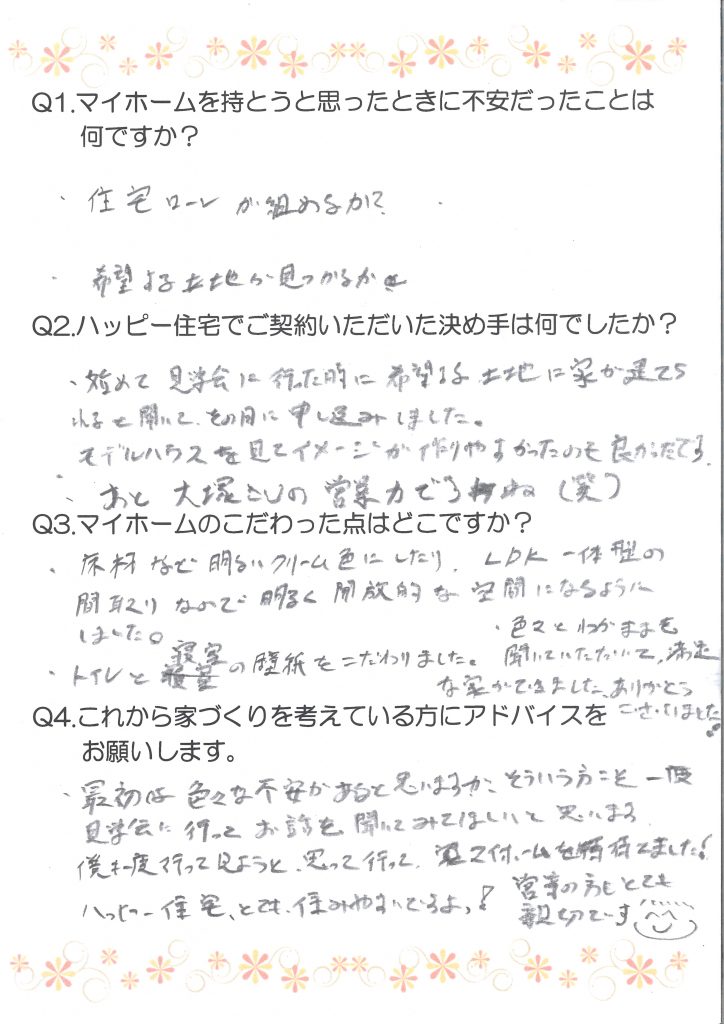 Q1.マイホームを持とうと思ったときに不安だったことは
何ですか？
・住宅ローンが組めるか?
・希望する土地が見つかるか
Q2.ハッピー住宅でご契約いただいた決め手は何でしたか？
・始めて見学会に行った時に希望する土地に家が建てら
れると聞いて、その日に申し込みしました。
モデルハウスを見てイメージが作りやすかったのも良かったです。
・あと大塚さんの営業力ですかね(笑)
Q3.マイホームのこだわった点はどこですか？
・床材など明るいクリーム色にしたり、LDK一体型の
間取りなので明るく開放的な空間になるように
しました。
・トイレと寝室の壁紙をこだわりました。
・色々とわがままを
聞いていただいて、満足
な家ができました。ありがとう
ございました!
Q4.これから家づくりを考えている方にアドバイスを
お願いします。
・最初は色々な不安があると思いますが、そういう方こそ一度
見学会に行ってお話を聞いてみてほしいと思います。
僕も一度行って見ようと、思って行って、マイホームを持てました!
ハッピー住宅、とても住みやすいですよっ!
営業の方もとても
親切です